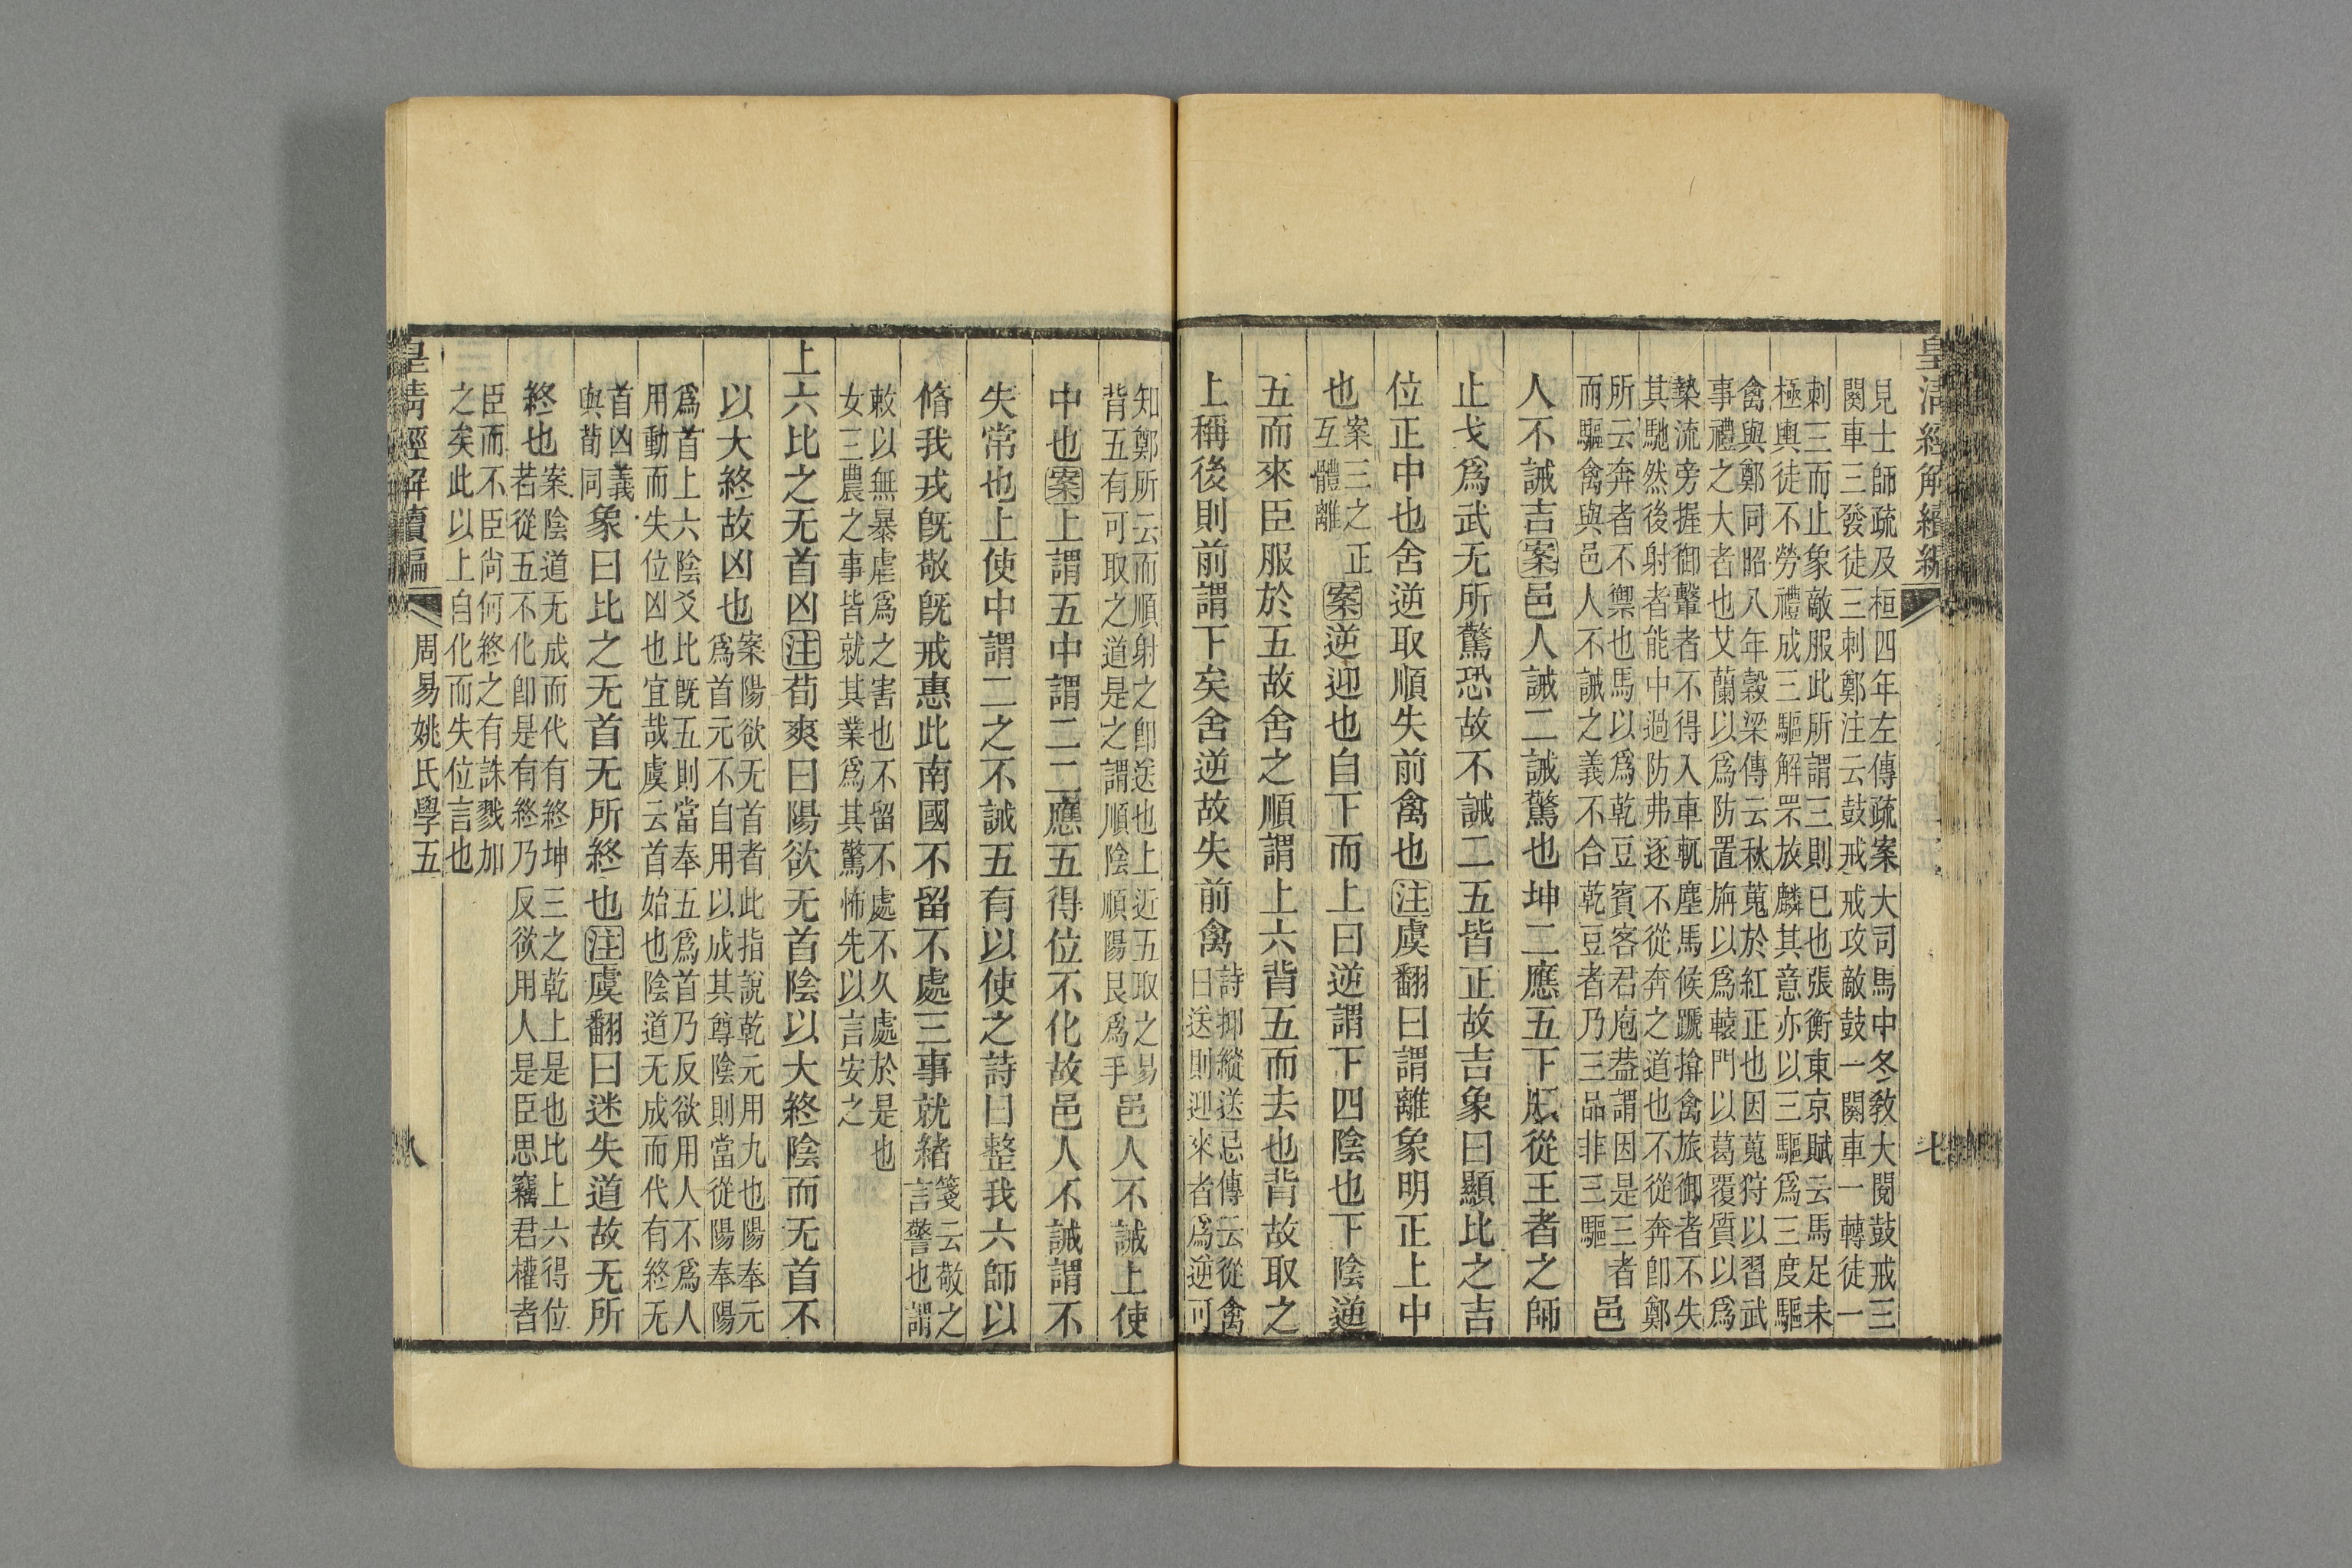 皇清經解續編
七
見士師疏及桓四年左傳疏案大司馬中冬教大閱鼓戒三
闋車三發徒三刺鄭注云鼓戒戒攻敵鼓一闋車一轉徒一
刺三而止象敵服此所謂三則已也張衡東京賦云馬足未
極輿徒不勞禮成三驅解罘放麟其意亦以三驅爲三度驅
禽與鄭同昭八年穀梁傳云秋蒐於紅正也因蒐狩以習武
事禮之大者也艾蘭以爲防置旃以爲轅門以葛覆質以爲
槷流旁握御轚者不得入車軌塵馬候蹏揜禽旅御者不失
其馳然後射者能中過防弗逐不從奔之道也不從奔卽鄭
所云奔者不禦也馬以爲乾豆賓客君庖葢謂因是三者
而驅禽與邑人不誡之義不合乾豆者乃三品非三驅
邑
人不誡吉案邑人誡二誡驚也坤二應五下順從王者之師
止戈爲武无所驚恐故不誡二五皆正故吉象曰顯比之吉
位正中也舍逆取順失前禽也注虞翻曰謂離象明正上中
也
案三之正
互體離
案逆迎也自下而上曰逆謂下四陰也下陰逆
五而來臣服於五故舍之順謂上六背五而去也背故取之
上稱後則前謂下矣舍逆故失前禽
詩抑縱送忌傳云從禽
曰送則迎來者爲逆可
知鄭所云而順射之卽送也上近五取之易
背五有可取之道是之謂順陰順陽艮爲手
邑人不誡上使
中也案上謂五中謂二二應五得位不化故邑人不誡謂不
失常也上使中謂二之不誡五有以使之詩曰整我六師以
脩我戎旣敬旣戒惠此南國不留不處三事就緖
箋云敬之
言警也謂
敕以無暴虐爲之害也不留不處不久處於是也
女三農之事皆就其業爲其驚怖先以言安之
上六比之无首凶注荀爽曰陽欲无首陰以大終陰而无首不
以大終故凶也
案陽欲无首者此指說乾元用九也陽奉元
爲首元不自用以成其尊陰則當從陽奉陽
爲首上六陰爻比旣五則當奉五爲首乃反欲用人不爲人
用動而失位凶也宜哉虞云首始也陰道无成而代有終无
首凶義
與荀同
象曰比之无首无所終也注虞翻曰迷失道故无所
終也
案陰道无成而代有終坤三之乾上是也比上六得位
若從五不化卽是有終乃反欲用人是臣思竊君權者
臣而不臣尙何終之有誅戮加
之矣此以上自化而失位言也
皇清經解續編
周易姚氏學五
八